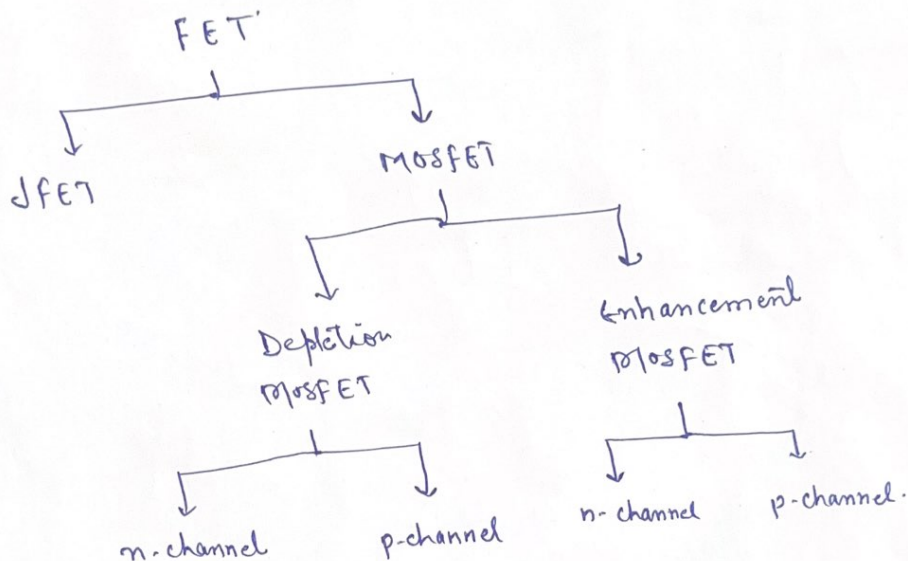 FET
JFET
MOSFET
Depletion
MOSFET
Enhancement
MOSFET
n-channel
p-channel
n-channel
p-channel.